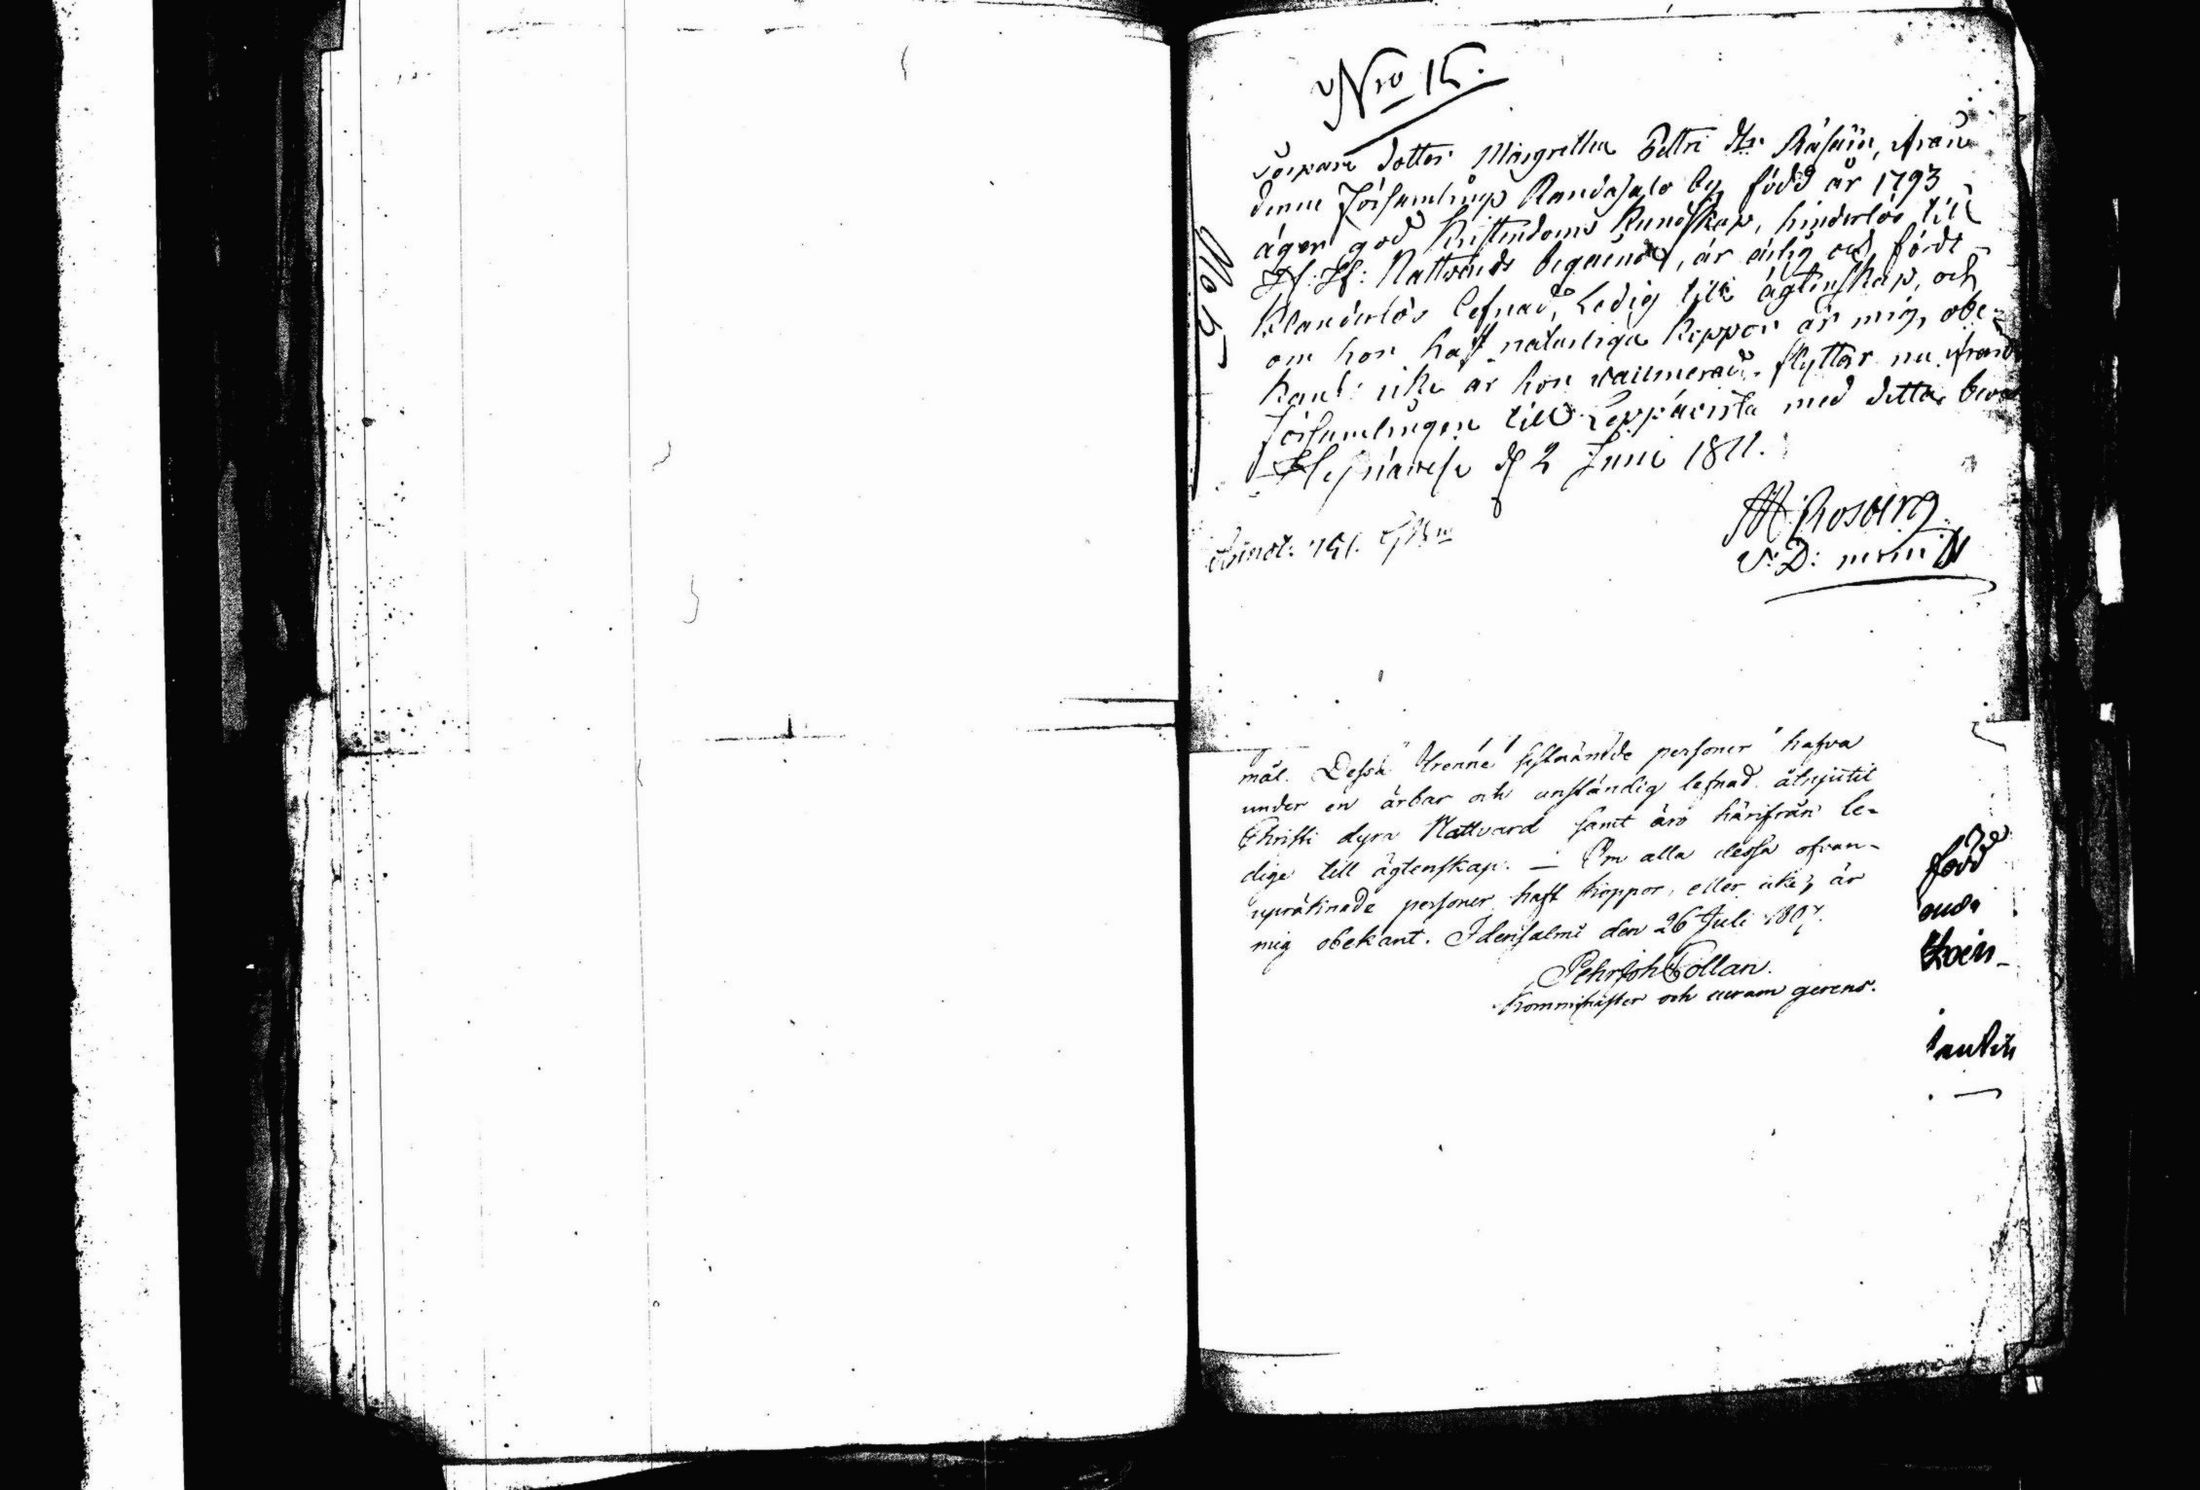 Nro 15.
dotter Margretha Pettri dtr Räsäin, från
denna Församling Randasalo by, född år 1793
äger god Kristendoms Kundskap, hinderlös till
H: H: Nattvards begående, är ärlig och fördt
klanderlös lefnad, Ledig till ägtenskap, och
om hon haft naturliga koppor är mig obe-
kant: icke är hon vaccinerad. flyttar nu från
församlingen till Leppävirta med detta
d 2 Junii 1811.
H: Rosberg
V: D: min:
No 5
Annot: 151.
mål. Dessa trenne sistnämde personer hafva
under en ärbar och anständig lefnad åtnjutit
Christi dyra Nattvard samt äro härifrån le-
dige till ägtenskap. — Om alla dessa ofvan-
upräknade personer haft koppor, eller icke, är
mig obekant. Idensalmi den 26 Juli 1807.
Pehr Joh Collan.
Kommisister och curam gerens.
född